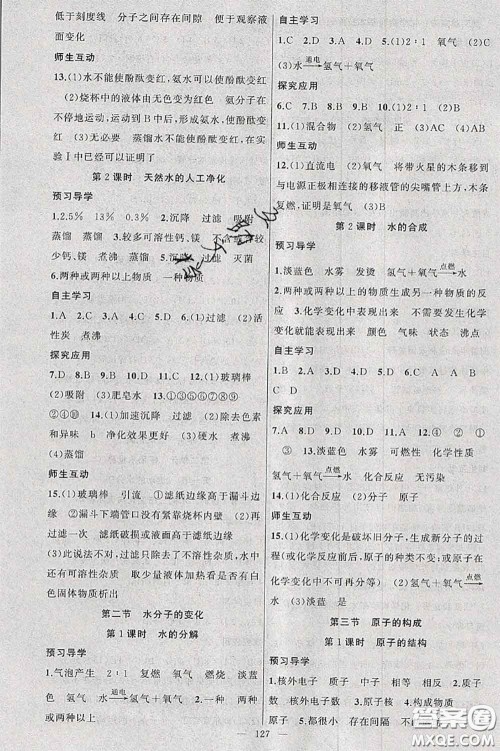 低于刻度线　分子之间存在间隙　便于观察液
面变化
师生互动
13.(1)水不能使酚酞变红,氨水可以使酚酞变红
(2)烧杯中的液体由无色变为红色　氨分子在
不停地运动,运动到 B 中后,形成氨水,氨水使酚
酞变红　(3)无必要　蒸馏水不能使酚酞变红,在实
验Ⅰ中已经可以证明了
第2课时　天然水的人工净化
预习导学
1.2.5%　13%　0.3%　2.沉降　过滤　吸附
蒸馏　蒸馏　3.较多可溶性钙、镁　不含或含较
少钙、镁　煮沸　蒸馏　5.沉降　过滤　灭菌
6.两种或两种以上物质　一种物质
自主学习
1.C　2.A　3.D　4.C　5.C　6.(1)过滤　(2)活
性炭　煮沸
探究应用
7.D　8.D　9.B　10.D　11.C　12.(1)玻璃棒
(2)吸附　(3)肥皂水　13.(1)玻璃棒
②④⑩　14.(1)加速沉降　过滤　(2)除去色素
和异味　b　净化效果更好　(3)硬水　肥皂水
(4)蒸馏
师生互动
15.(1)玻璃棒　引流　①滤纸边缘高于漏斗边
缘　②漏斗下端管口没有紧靠烧杯内壁　(2)再
过滤一次　滤纸破损或液面高于滤纸边缘
(3)此说法不对,过滤只能除去不可溶性杂质,可
溶性杂质　取少量液体加热看是否有白色
固体物质析出
第二节　水分子的变化
第1课时　水的分解
预习导学
1.气泡产生　2∶1　复燃　氧气　燃烧　淡蓝
色　氢气　水 通电→ 氢气＋氧气　2.一种　两种
或两种以上
自主学习
1.C　2.D　3.A　4.D　5.(1)2∶1　氧气
(3)水 通电→ 氢气＋氧气
探究应用
6.C　7.B　8.D　9.C　10.(1)2∶1　(2)B
11.(1)混合物　(2)氢气　(3)正　(4)AC　(5)AB
师生互动
12.(1)直流电　(2)氧气　将带火星的木条移到
与电源正极相连接的移液管的尖嘴管上方,木条
复燃,证明是氧气　(3)B
第2课时　水的合成
预习导学
1.淡蓝色　水雾　发烫　氢气＋氧气 点燃→ 水
2.两种或两种以上的物质生成另一种物质的反
应　3.化学变化中表现出来　不需要发生化学
变化就能表现出来　颜色　气味　状态　沸点
自主学习
C　D
探究应用
7.A　8.D　9.B　10.D　11.A　12.④　②　①
③　13.淡蓝色　水雾　可燃性　化学性质
氢气＋氧气 点燃→ 水　化合反应　无污染
14.(1)化学变化　(2)分子　原子
师生互动
15.(1)化学变化是破坏旧分子,生成新分子的
过程(或化学反应前后,原子的种类不变;或原子在
化学变化中不可再分等)　(2)氢气＋氧气 点燃→
水　(3)淡蓝　是
第三节　原子的构成
第1课时　原子的结构
预习导学
1.核外电子　质子　中子　相等　相反
2.质子　核外电子　3.相同　4.原子　构成物质
原子　5.都很小　存在间隔　不
127
答案圈
MXQE.COM